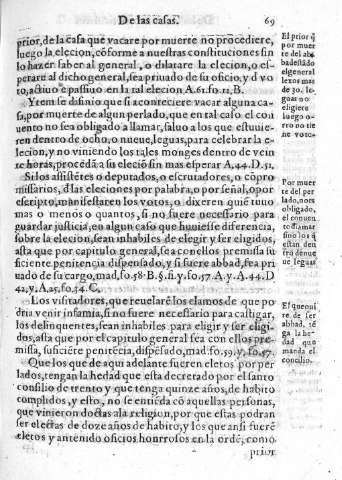 De las casas. 69
prior, de la casa que vacare por muerte no procediere,
luego la elecion, cōforme a nuestras constituciones sin
lo hazer saber al general, o dilatare la elecion, o es-
perare al dicho general, sea priuado de su oficio, y d vo
to, actiuo e passiuo en la tal elecion A.61.fo.11, B.
Ytem se difinio que si aconteciere vacar alguna ca-
sa, por muerte de algun perlado, que en tal caso el con
uento no sea obligado a llamar, saluo a los que estuuie-
ren dentro de ocho, o nueue, leguas, para celebrar la e-
lecion, y no viniendo los tales monges dentro de vein
te horas, procedā a su eleciō sin mas esperar A, 44. D.31.
Si los assistētes o deputados, o escrutadores, o cōpro
missarios, d las eleciones por palabra, o por señal, o por
escripto, manifestaren los votos, o dixeren quiē tuuo
mas o menos o quantos, si no fuere necessario para
guardar justicia, eo algun caso que huuiesse diferencia,
sobre la elecion, sean inhabiles de elegir y ser eligidos,
asta que por capitulo general, sea cō ellos premissa su
ficiente penitencia dispensado, y si fuere abbad, sea pri
uado de su cargo, mad, fo.58 B.§.si.y.fo.57 A.y.A.44.D
42, y.A.25, fo.54. C.
Los visitadores, que reuelarē los clamos de que po
dria venir infamia, si no fuere necessario para castigar,
los delinquentes, sean inhabiles para eligir y ser eligi-
dos, asta que por el capitulo general sea con ellos pre-
missa, suficiēre penitēcia, dispēsado, mad.fo.59.y.fo.57.
Que los que de aqui adelante fueren eletos por per
lados, tengan la hedad que esta decretado por el santo
consilio de trento y que tenga quinze años, de habito
complidos, y esto, no se entiēda cō aquellas personas,
que vinieron doctas a la religion, por que estas podran
ser electas de doze años de habito, y los que ansi fuerē
eletos y an tenido oficios honrrosos en la ordē, como
prior
El prior q̄
por muer
te del ab
bad estādo
el general
lexos mas
de 30. le-
guas no
eligiere
luego o-
rro no tie
ne voto.
Por muer
te del per
lado, no es
obligado,
el conuen
to llamar
sino los q̄
estan den
tro de nue
ue leguas
El que oui
re de ser
abbad, tē
ga la he-
dad que
manda el
concilio.